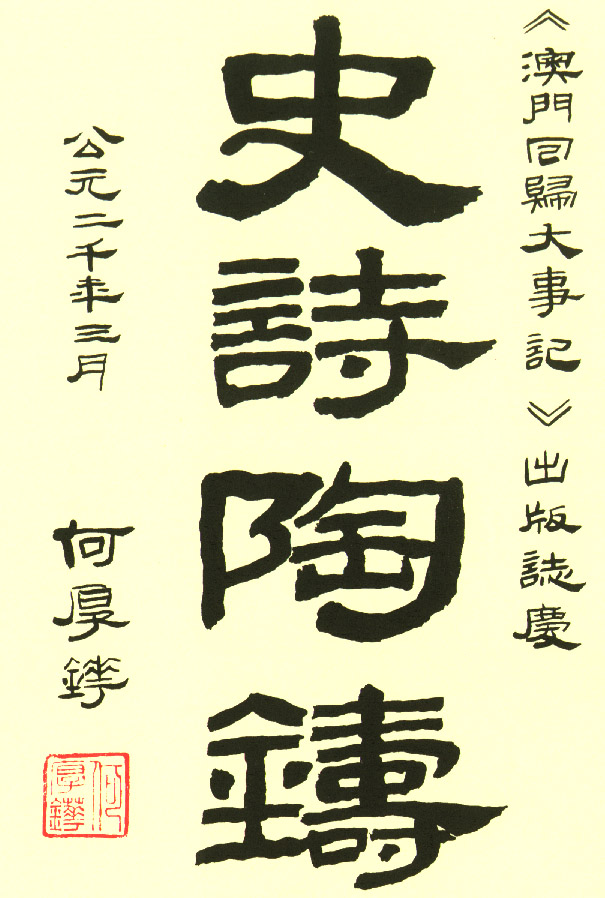 《澳門回歸大事記》出版誌慶
史詩陶鑄
公元二千年三月
何厚鏵
何厚鏵